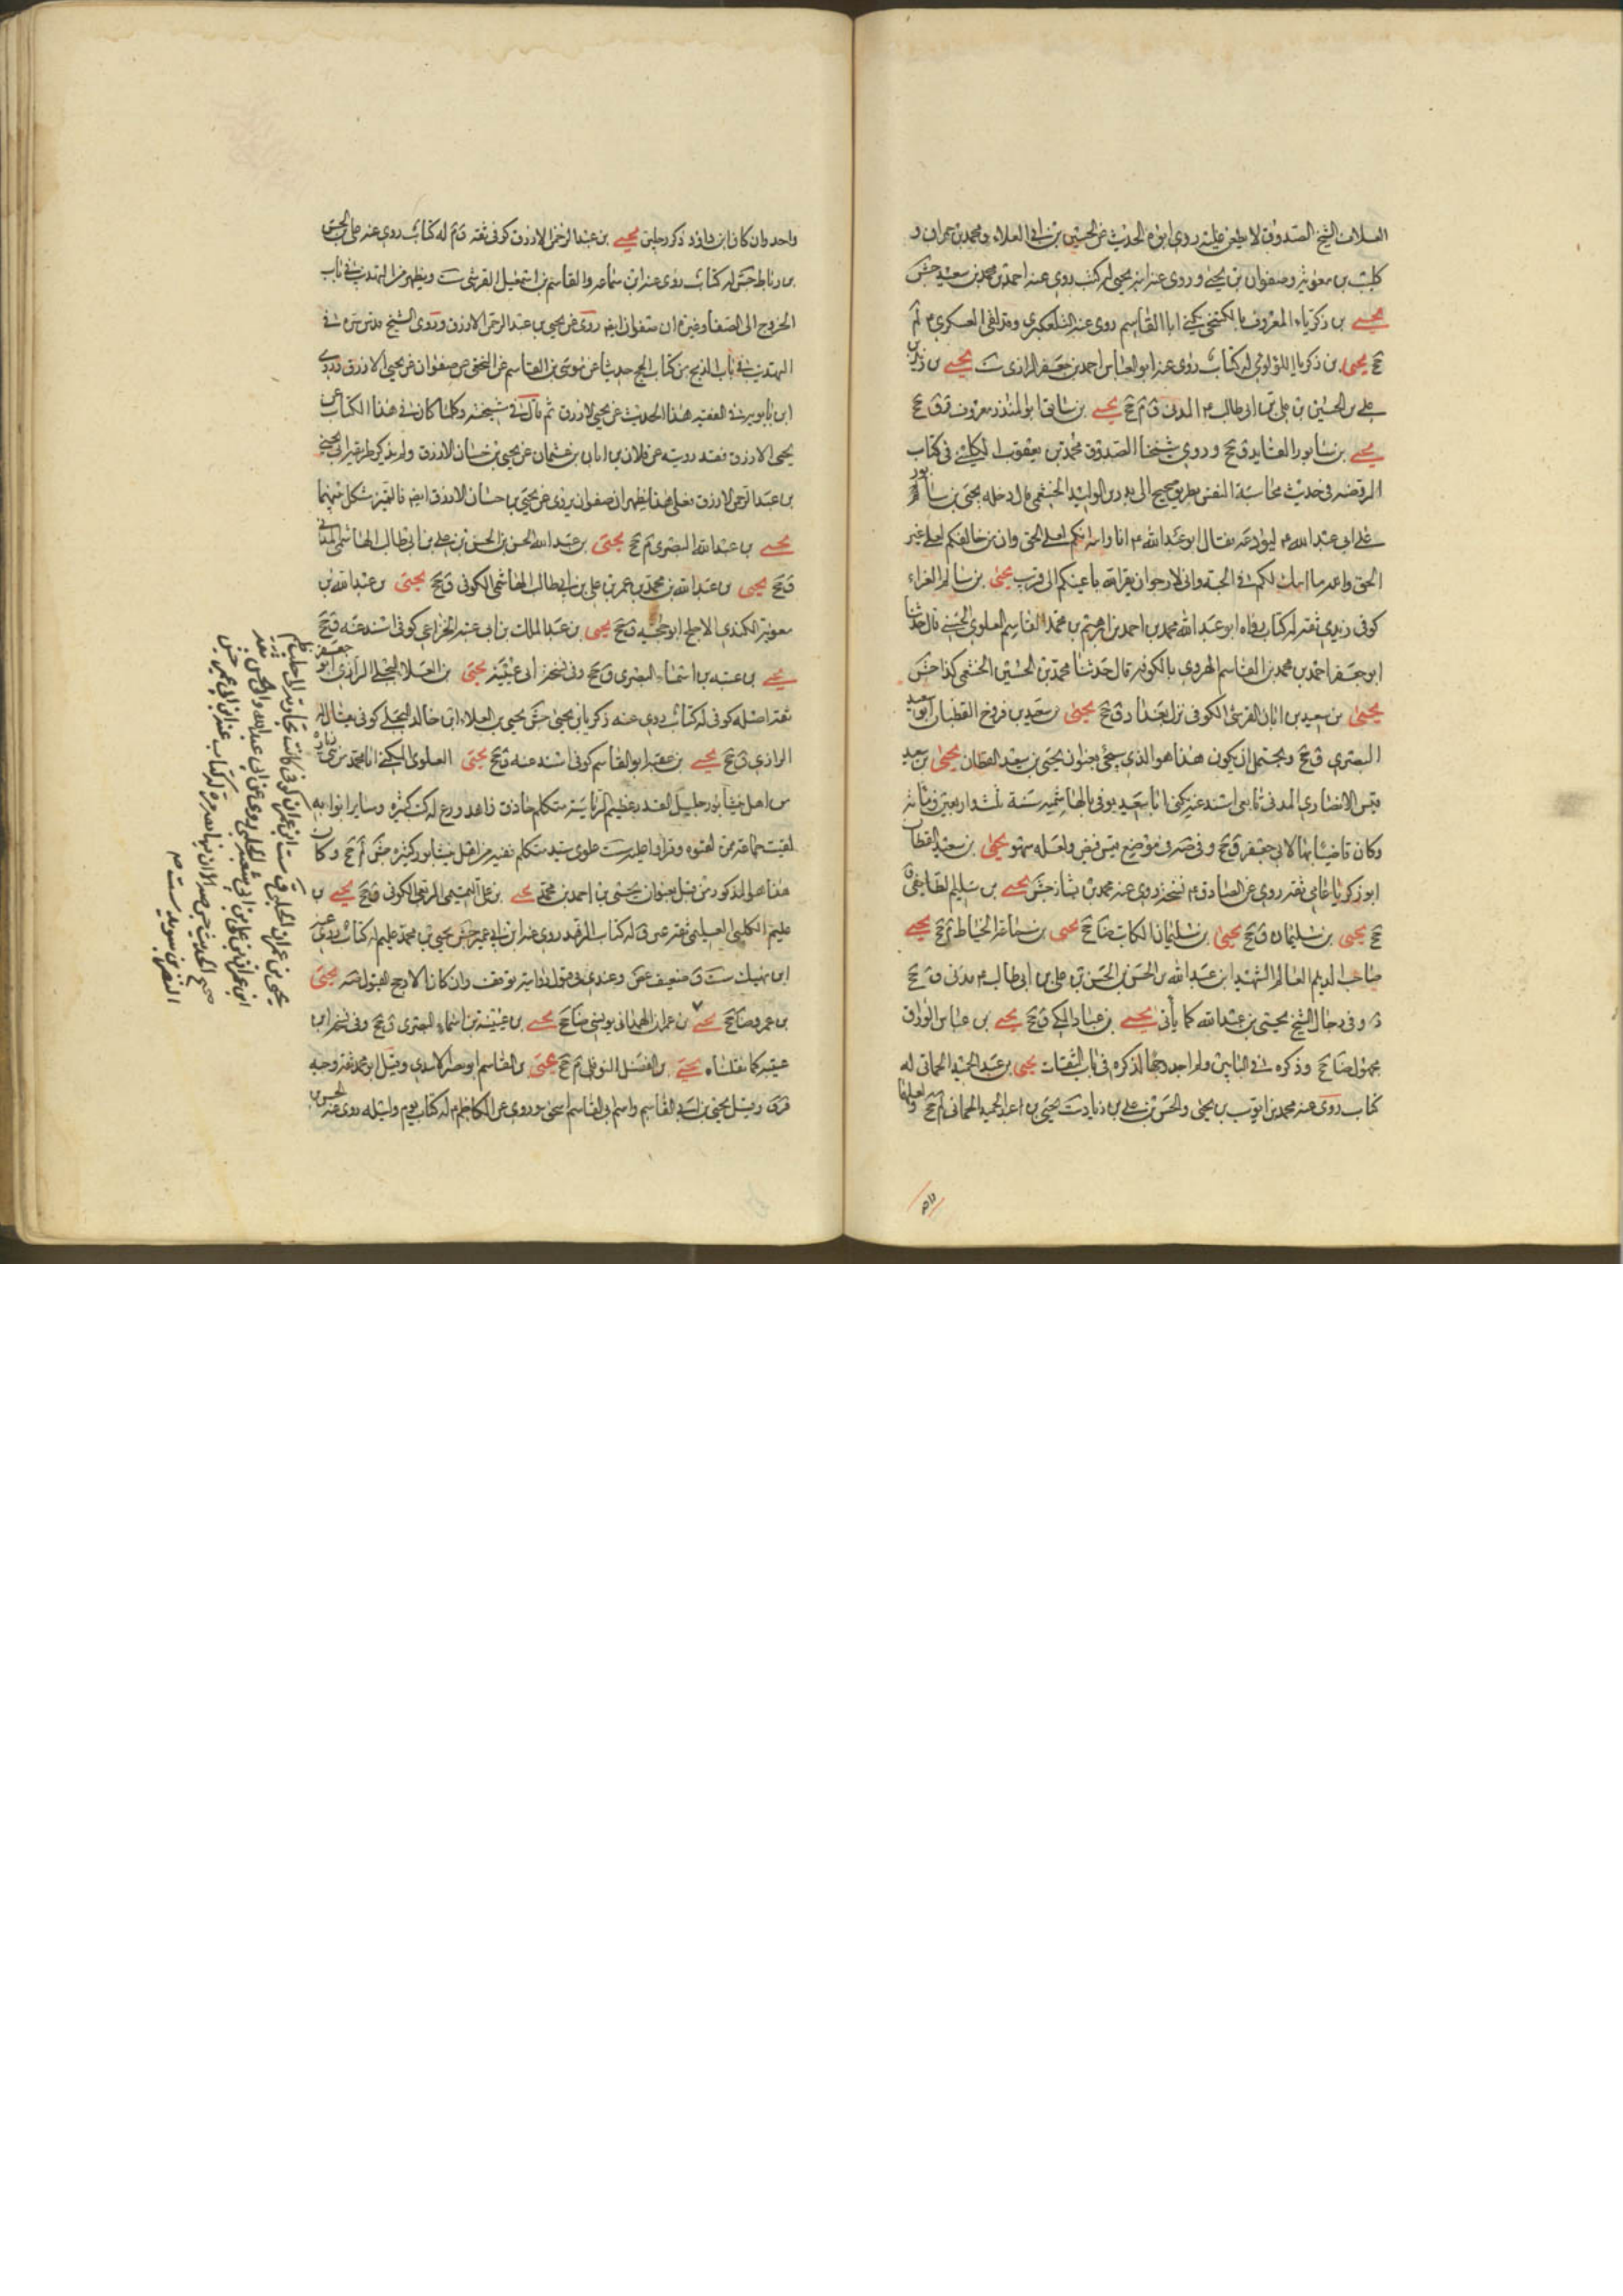 العلا ان الشيخ الصدوق لا يطعن عليه روى ابوه الحديث عن الحسين بن ابي العلاء ومحمد بن حمران و
كليب بن معوية وصفوان بن يحيى وروى عنه ابنه يحيى له كتب روى عنه احمد بن محمد بن سعيد جش
يحيى بن زكرياء المعروف بالكنجي يكنى ابا القاسم روى عنه التلعكبرى وقد لقى العسكرى م لم
جخ يحيى بن زكريا اللؤلوئى له كتاب روى عنه ابو العباس احمد بن جعفر الرازى ست يحيى بن زيد بن
على بن الحسين بن على بن ابى طالب م المدنى ق م جخ يحيى بن سابق ابو المنذر معروف ق جخ
يحيى بن سابور القايد ق جخ وروى شيخنا الصدوق محمد بن يعقوب الكلينى فى كتاب
الروضة فى حديث محاسبة النفس بطريق صحيح الى بدر بن الوليد الخثعمى قال دخل يحيى بن سابور
على ابى عبد الله م ليودعه فقال ابو عبد الله م اما والله انكم لعلى الحق وان من خالفكم لعلى غير
الحق والله ما اشك لكم فى الجنة وانى لارجو ان يقر الله باعينكم الى قريب يحيى بن سالم الفراء
كوفى زيدى ثقة له كتاب رواه ابو عبد الله محمد بن احمد بن ابرهيم بن محمد القاسم العلوى الحسنى قال حدثنا
ابو جعفر احمد بن محمد بن القاسم الهروى بالكوفة قال حدثنا محمد بن الحسين الخثعمى كذا جش
يحيى بن سعيد بن ابان القرشى الكوفى نزل بغداد ق جخ يحيى بن سعيد بن فروخ القطان ابو سعيد
البصرى ق جخ ويحتمل ان يكون هذا هو الذى سيجئ بعنوان يحيى بن سعيد القطان يحيى بن سعيد
قيس الانصارى المدنى تابعى اسند عنه يكنى ابا سعيد توفى بالهاشمية سنة ثلث واربعين ومائة
وكان قاضيا بها لابى جعفر ق جخ وفى صه فى موضع قيس فيض ولعله سهو يحيى بن سعيد القطان
ابو زكريا عامى ثقة روى عن الصادق م نسخة روى عنه محمد بن بشار جش يحيى بن سليم الطايفى ق
جخ يحيى بن سليمان ق جخ يحيى بن سليمان الكاتب ضا جخ يحيى بن سماعة الخياط م جخ يحيى
صاحب الديلم العالم الشهيد ابن عبد الله بن الحسن بن الحسن بن على بن ابى طالب م مدنى ق جخ
وفى رجال الشيخ يحيى بن عبد الله كما يأتى يحيى بن عباد المكى ق جخ يحيى بن عباس الوراق
مجهول ضا جخ وذكره فى البابين ولم اجد وجها لذكره فى باب الثقات يحيى بن عبد الحميد الحمانى له
كتاب روى عنه محمد بن ايوب بن يحيى والحسن بن على بن زياد ست يحيى بن عبد الحميد الحمانى لم جخ
واحد وان كان ابن داود ذكر رجلين يحيى بن عبد الرحمن الازرق كوفى ثقة ق م له كتاب روى عنه على بن الحسن
بن رباط جش له كتاب روى عنه ابن سماعة والقاسم بن اسمعيل القرشى ست ويظهر من التهذيب فى باب
الخروج الى الصفا وغيره ان صفوان ايضا روى عن يحيى بن عبد الرحمن الازرق وروى الشيخ قدس سره فى
التهذيب فى باب الذبح من كتاب الحج حديثا عن موسى بن القاسم عن النخعى عن صفوان عن يحيى الازرق وروى
ابن بابويه فى الفقيه هذا الحديث عن يحيى الازرق ثم قال فى مشيخته وكلما كان فى هذا الكتاب عن
يحيى الازرق فقد رويته عن فلان بن ابان بن عثمان عن يحيى بن حسان الازرق ولم يذكر طريقه الى يحيى
بن عبد الرحمن الازرق فعلى هذا يظهر ان صفوان يروى عن يحيى بن حسان الازرق ايضا فالتميز مشكل بينهما
يحيى بن عبد الله البصرى م جخ يحيى بن عبد الله الحسن بن الحسن بن على بن ابى طالب الهاشمى المدنى
ق جخ يحيى بن عبد الله بن محمد بن عمر بن على بن ابى طالب الهاشمى الكوفى ق جخ يحيى بن عبد الله بن
معوية الكندى الاجلح ابو حجية ق جخ يحيى بن عبد الملك بن ابى عنية الخزاعى كوفى اسند عنه ق جخ
يحيى بن عتبه بن اسماء البصرى ق جخ وفى نسخة ابى عقبة يحيى بن العلاء البجلى الرازى ابو جعفر
ثقة اصله كوفى له كتاب روى عنه زكريا بن يحيى جش يحيى بن العلاء ابن خالد البجلى كوفى يقال له
الرازى ق جخ يحيى بن عقبه ابو القاسم كوفى اسند عنه ق جخ يحيى العلوى المكنى ابا محمد من بنى زباره
من اهل نيشابور جليل القدر عظيم الرياسة متكلم حاذق زاهد ورع له كتب كثيرة وسايرا بوابه
لقيت جماعة ممن لقوه وقرأوا عليه ست علوى سيد متكلم فقيه من اهل نيشابور كثيره جش لم جخ وكان
هذا هو المذكور من قبل بعنوان يحيى بن احمد بن محمد يحيى بن على التميمى الربعى الكوفى ق جخ يحيى بن
عليم الكلبى العليمى ثقة عين ق له كتاب المرقد روى عنه ابن ابى عمير جش يحيى بن محمد عليم له كتاب روى عنه
ابن نهيك ست ق ضعيف غض وعندى فى قبول روايته توقف وان كان الارجح القبول صه يحيى
بن عمرو ضا جخ يحيى بن عمران الهمدانى يونسى ضا جخ يحيى بن عيينة بن اسماء البصرى ق جخ وفى نسخة ابى
عقبة كما نقلناه يحيى بن الفضل النوفلى م جخ يحيى بن القاسم ابو بصير الاسدى وقيل ابو محمد ثقة وجيه
ق ق وقيل يحيى بن ابى القاسم واسم ابى القاسم اسحق وروى عن الكاظم م له كتاب يوم وليلة روى عنه الحسن بن
يحيى بن عمران الحلبى ق ست ابن عمران كوفى كانت تجارته الى حلب
ابن عمران بن على بن ابى شعبة الحلبى روى عن ابى عبد الله وابى الحسن ثقة
صحيح الحديث جش صه الا ان فيها مرة له كتاب عنه ابن ابى عمير جش
النضر بن سويد ست م